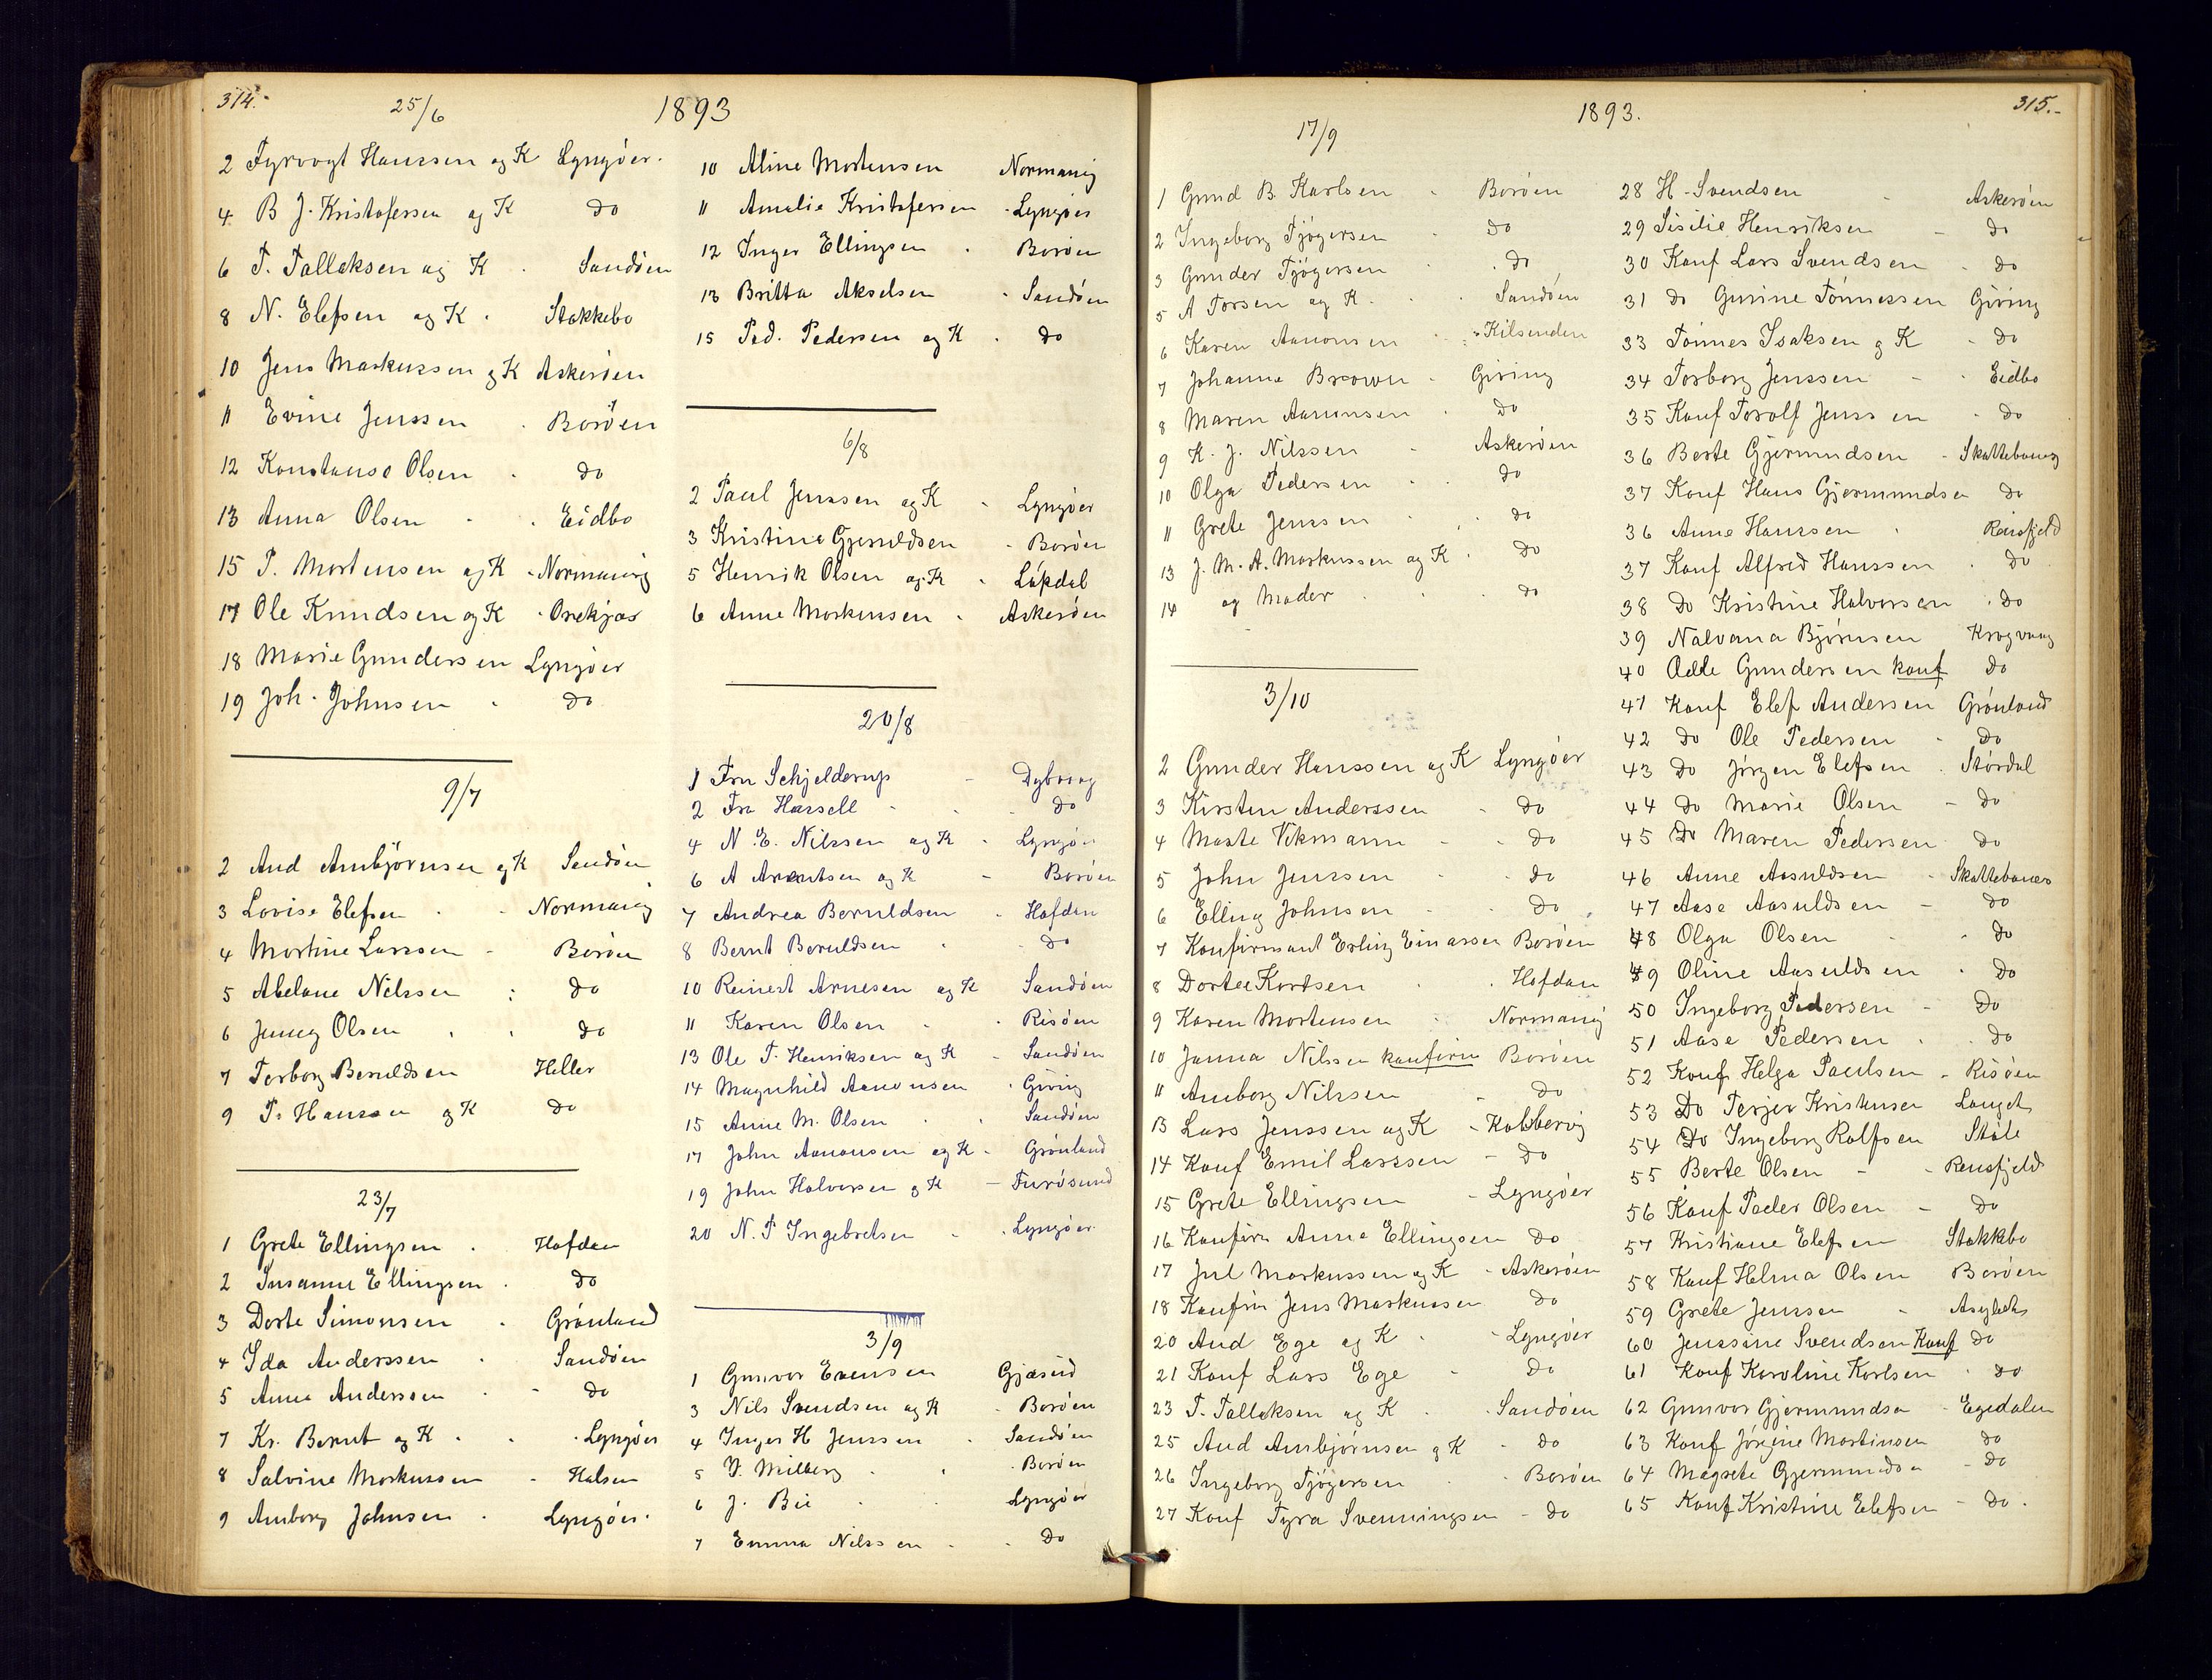 314.
25/6
1893
2 Fyrvogt Hanssen og K Lyngöer.
4 B J. Kristofersen og K do
6 T. Tallaksen og K . Sandöen
8 N. Elefsen og K . Stokkebo
10 Jens Markussen og K Askeröen
11 Evine Jenssen . Boröen
12 Konstanse Olsen . do
13 Anna Olsen . . Eidbo
15 P. Mortensen og K - Normanvig
17 Ole Knudsen og K . Orekjær
18 Marie Gundersen Lyngöer
19 Joh. Johnsen . do
9/7
2 And Ambjörnsen og K Sandöen
3 Lovise Elefsen . - Normanvig
4 Mortine Larssen - Boröen
5 Abelone Nilssen : do
6 Jenny Olsen . . do
7 Torborg Beruldsen Heller
9 P. Hanssen og K do
23/7
1 Grete Ellingsen . Hofden
2 Susanne Ellingsen . do
3 Dorte Simonsen . Grönland
4 Ida Anderssen . Sandöen
5 Anna Anderssen . - do
7 Kr. Bernt og K . . . Lyngöer
8 Salvine Markussen - Kalsen
9 Amborg Johnsen . Lyngöer.
10 Aline Mortensen Normanvig
11 Amalie Kristofersen . Lyngöer
12 Inger Ellingsen . Boröen
13 Britta Akselsen . Sandöen
15 Ped. Pedersen og K . do
6/8
2 Paul Jenssen og K - Lyngöer
3 Kristine Gjeruldsen - Boröen
5 Henrik Olsen og K - Löpdal
6 Anne Markussen . Askeröen
20/8
1 Fru Schjelderup - Dybvaag
2 Fru Hassell - . do
4 N. E. Nilssen og K - Lyngöer
6 A Arentsen og K - Boröen
7 Andrea Beruldsen . Hofden
8 Bernt Beruldsen . . do
10 Reinert Arnesen og K Sandöen
11 Karen Olsen - . Risöen
13 Ole T. Henriksen og K - Sandöen
14 Magnhild Aanonsen . Giving
15 Anne M. Olsen . . Sandöen
17 John Aanonsen og K . Grönland
19 John Halvorsen og K - Furösund
20 N. P Ingebretsen - . Lyngöer.
3/9
1 Gunvor Evensen Gjæsund
3 Nils Svendsen og K . Boröen
4 Inger H Jenssen . Sandöen
5 V. Milberg . . . Boröen
6 J. Bie . . Lyngöer
7 Emma Nilssen - . do
1893.
315.-
17/9
1 Gund B. Karlsen - Boröen
2 Ingeborg Tjögersen - do
3 Gunder Tjögersen . . do
5 A Torsen og K . . . Sandöen
6 Karen Aanonsen . Kilsenden
7 Johanna Brown - Giving
8 Maren Aanonsen . do
9 K. J. Nilssen - Askeröen
10 Olga Pedersen . . do
11 Grete Jenssen . . do
13 J. M. A. Markussen og K . do
14 og Moder . . . do
3/10
2 Gunder Hanssen og K Lyngöer
3 Kirsten Anderssen - do
4 Marte Vikmann - - do
5 John Jenssen - . do
6 Elling Johnsen - . do
7 Konfirmant Erling Einarsen Boröen
8 Dortee Kortsen . . Hofden
9 Karen Mortensen . Normanvig
10 Janna Nilssen konfirm Boröen
11 Amborg Nilssen - do
13 Lars Jenssen og K - Kobbervig
14 Konf Emil Larssen - do
15 Grete Ellingsen - Lyngöer
16 Konfirm Anna Ellingsen do
17 Jul Markussen og K - Askeröen
18 Konfirm Jens Markussen do
20 And Ege og K . - Lyngöer
21 Konf Lars Ege - do
23 T. Tallaksen og K . . Sandöen
25 And Ambjörnsen og K - do
26 Ingeborg Tjögersen . . Boröen
27 Konf Tyra Svenningsen - do
28 H. Svendsen - Askeröen
29 Sisilie Henriksen - do
30 Konf Lars Svendsen . do
31 do Gurine Tönnessen Giving
33 Tönnes Isaksen og K - do
34 Torborg Jenssen - - Eidbo
35 Konf Torolf Jenssen . do
36 Berte Gjermundsen - Skattebouej
37 Konf Hans Gjermundsen do
36 Anne Hanssen . Rensfjeld
37 Konf Alfred Hanssen . do
38 Do Kristine Halvorsen . do
39 Nalvana Bjørnsen Krogvaag
40 Odde Gundersen konf do
41 Konf Elef Andersen Grönland
42 do Ole Pedersen - do
43 do Jörgen Elefsen . Stördal
44 do Marie Olsen - do
45 Do Maren Pedersen . do
46 Anne Aasuldsen - Skattebouej
47 Aase Aasuldsen - do
48 Olga Olsen . . do
49 Oline Aasuldsen . do
50 Ingeborg Pedersen - Do
51 Aase Pedersen . . do
52 Konf Helga Paulsen - Risöen
53 Do Terjer Kristensen Langet
54 Do Ingeborg Rolfsen Stöle
55 Berte Olsen - - Rensfjeld
56 Konf Peder Olsen - do
57 Kristiane Elefsen Stokkebo
58 Konf Helma Olsen Boröen
59 Grete Jenssen - Asylet
60 Jenssine Svendsen Konf do
61 Konf Karoline Karlsen . do
62 Gunvor Gjermundsen - Egedalen
63 Konf Jörgine Martinsen do
64 Magrete Gjermundsen - do
65 Konf Kristine Elefsen - do.